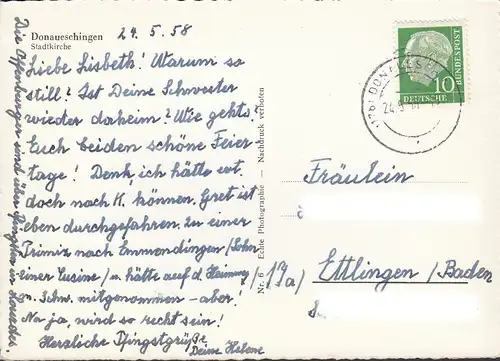 Donaueschingen
Stadtkirche
24. 5. 58
Liebe Lisbeth! Warum so
still? Ist Deine Schwester
wieder daheim? Wie gehts?
Euch beiden schöne Feier
tage! Denk, ich hätte evt.
doch nach K. können. Gret ist
eben durchgefahren. Zu einer
Primiz nach Emmendingen (Sohn
einer Cusine) u. hätte auf d. Heimweg
mitgenommen - aber!
Na ja, wird so recht sein!
Herzliche Pfingstgrüße
Deine Helene
Die Offenburger sind über Pfingsten in
Nr. 6 Echte Photographie — Nachdruck verboten
10
DEUTSCHE
BUNDESPOST
(17b) DONAUES
24.5.
Fräulein
17a) Ettlingen / Baden